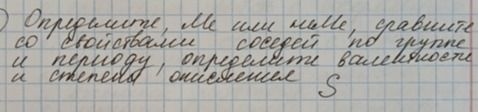 ) Определите, Ме или неМе, сравните
со свойствами соседей по группе
и периоду, определите валентности
и степень окисления S